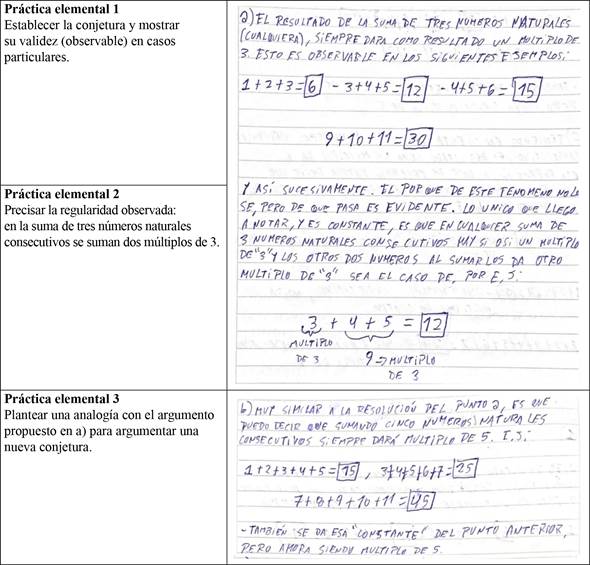 Práctica elemental 1
Establecer la conjetura y mostrar
su validez (observable) en casos
particulares.
a) EL RESULTADO DE LA SUMA DE TRES NÚMEROS NATURALES
(CUALQUIERA), SIEMPRE DARA COMO RESULTADO UN MULTIPLO DE
3. ESTO ES OBSERVABLE EN LOS SIGUIENTES EJEMPLOS:
1+2+3=6 - 3+4+5=12 - 4+5+6=15
9+10+11=30
Práctica elemental 2
Precisar la regularidad observada:
en la suma de tres números naturales
consecutivos se suman dos múltiplos de 3.
Y ASÍ SUCESIVAMENTE. EL POR QUE DE ESTE FENOMENO NO LO
SE, PERO DE QUE PASA ES EVIDENTE. LO UNICO QUE LLEGO
A NOTAR, Y ES CONSTANTE, ES QUE EN CUALQUIER SUMA DE
3 NUMEROS NATURALES CONSECUTIVOS HAY SI O SI UN MULTIPLO
DE "3" Y LOS OTROS DOS NUMEROS AL SUMARLOS DA OTRO
MULTIPLO DE "3" SEA EL CASO DE, POR EJ:
3 + 4 + 5 = 12
MULTIPLO
DE 3
9 → MULTIPLO
DE 3
Práctica elemental 3
Plantear una analogía con el argumento
propuesto en a) para argumentar una
nueva conjetura.
b) MUY SIMILAR A LA RESOLUCIÓN DEL PUNTO a, ES QUE
PUEDO DECIR QUE SUMANDO CINCO NUMEROS NATURALES
CONSECUTIVOS SIEMPRE DARÁ MULTIPLO DE 5. EJ:
1+2+3+4+5=15, 3+4+5+6+7=25
7+8+9+10+11=45
- TAMBIÉN SE DA ESA "CONSTANTE" DEL PUNTO ANTERIOR,
PERO AHORA SIENDO MULTIPLO DE 5.